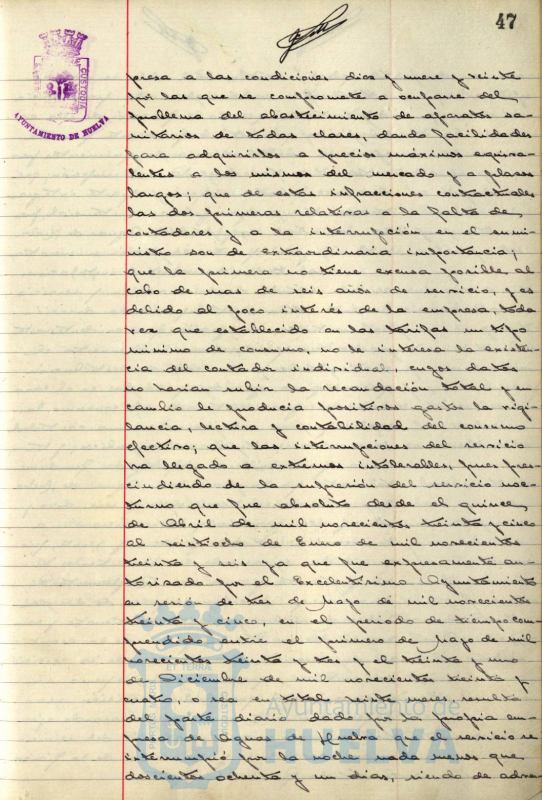 47
CUSTODIA
AYUNTAMIENTO DE HUELVA
presa a las condiciones diez y nueve y veinte
por las que se compromete a ocuparse del
problema del abastecimiento de aparatos sa-
nitarios de todas clases, dando facilidades
para adquirirlos a precios máximos equiva-
lentes a los mismos del mercado y a plazos
largos; que de estas infracciones contractuales
las dos primeras relativas a la falta de
contadores y a la interrupción en el sumi-
nistro son de extraordinaria importancia;
que la primera no tiene excusa posible, al
cabo de mas de seis años de servicio, y es
debido al poco interés de la empresa, toda
vez que establecido en las tarifas un tipo
mínimo de consumo, no le interesa la existen-
cia del contador individual, cuyos datos
no harian subir la recaudación total y en
cambio le producia positivos gastos la vigi-
lancia, lectura y contabilidad del consumo
efectivo; que las interrupciones del servicio
ha llegado a extremos intolerables, pues pres-
cindiendo de la supresión del servicio noc-
turno que fue absoluto desde el quince
de Abril de mil novecientos treinta y cinco
al veintiocho de Enero de mil novecientos
treinta y seis ya que fue expresamente au-
torizado por el Excelentísimo Ayuntamiento
en sesión de tres de Mayo de mil novecientos
treinta y cinco, en el periodo de tiempo com-
prendido entre el primero de Mayo de mil
novecientos treinta y tres y el treinta y uno
de Diciembre de mil novecientos treinta y
cuatro, o sea en total veinte meses, resulta
del parte diario dado por la propia em-
presa de Aguas de Huelva que el servicio se
interrumpió por la noche nada menos que
doscientos ochenta y un dias, siendo de adver-
ET TERRA
Ayuntamiento de
HUELVA